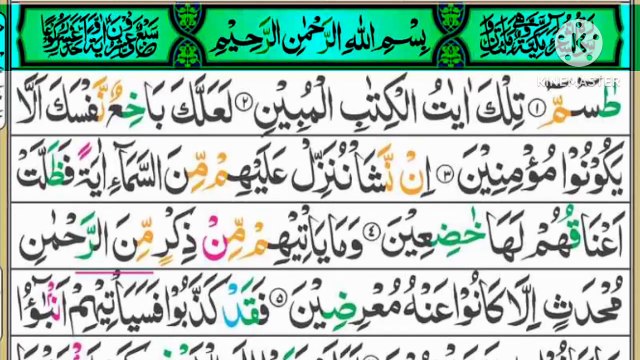 بِسْمِ اللهِ الرَّحْمٰنِ الرَّحِيْمِ
KINEMASTER
طٰسٓمّٓ ۝۱ تِلْكَ اٰيٰتُ الْكِتٰبِ الْمُبِيْنِ ۝۲ لَعَلَّكَ بَاخِعٌ نَّفْسَكَ اَلَّا
يَكُوْنُوْا مُؤْمِنِيْنَ ۝۳ اِنْ نَّشَاْ نُنَزِّلْ عَلَيْهِمْ مِّنَ السَّمَآءِ اٰيَةً فَظَلَّتْ
اَعْنَاقُهُمْ لَهَا خٰضِعِيْنَ ۝۴ وَمَا يَاْتِيْهِمْ مِّنْ ذِكْرٍ مِّنَ الرَّحْمٰنِ
مُحْدَثٍ اِلَّا كَانُوْا عَنْهُ مُعْرِضِيْنَ ۝۵ فَقَدْ كَذَّبُوْا فَسَيَاْتِيْهِمْ اَنْۢبٰٓؤُا